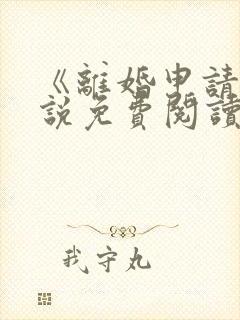 《離婚申請
說免費閱讀
我守丸